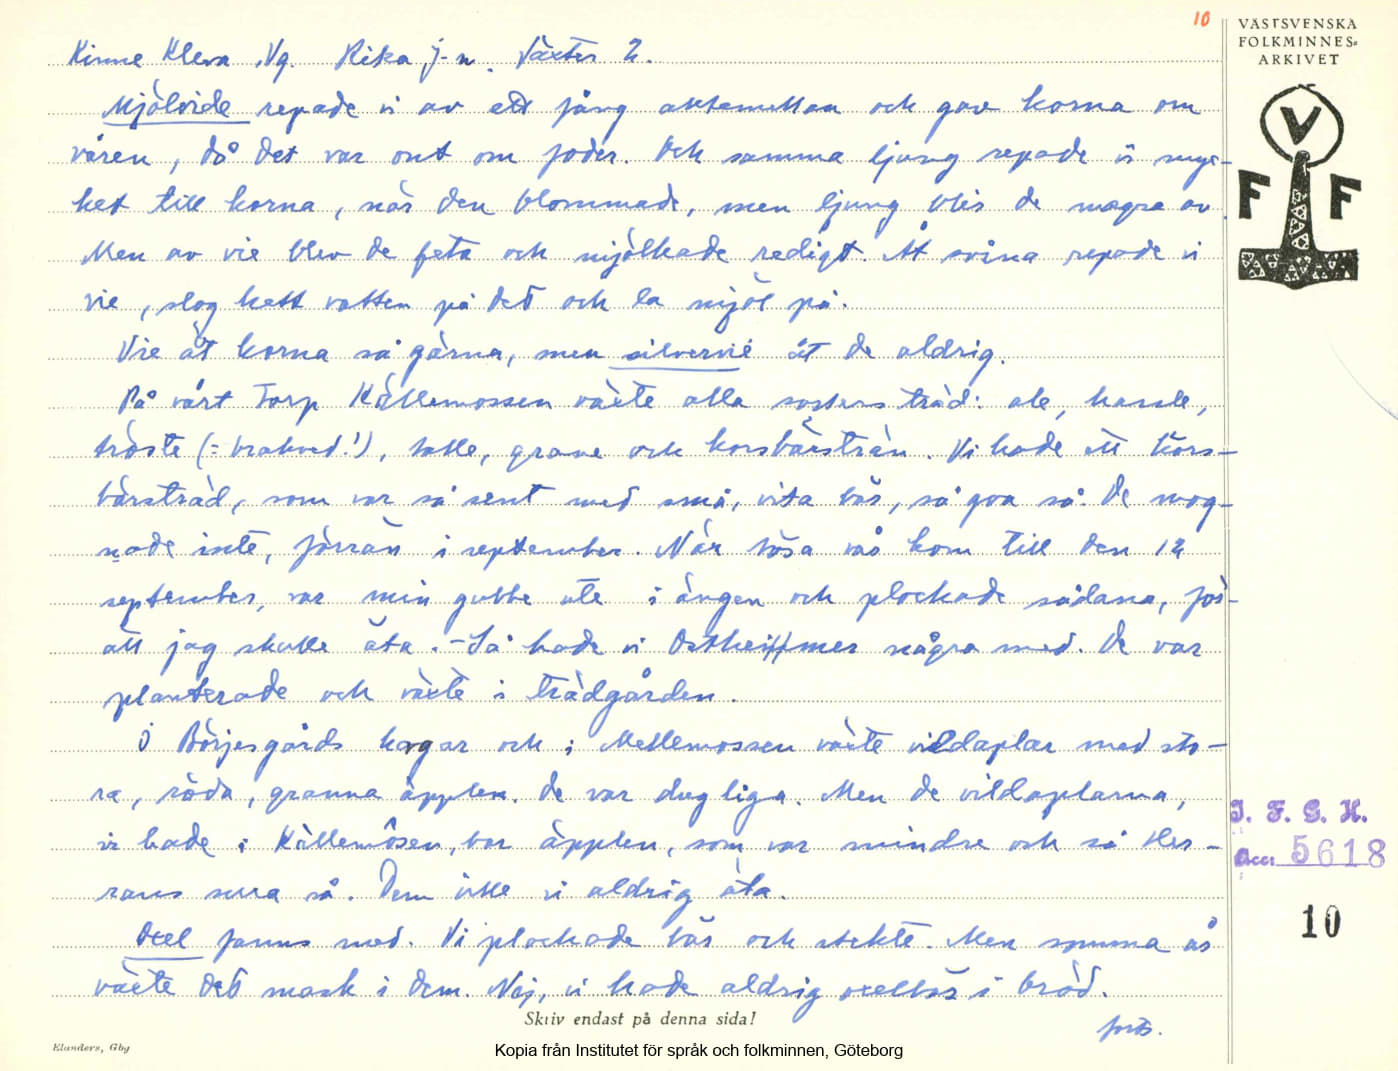 10
VÄSTSVENSKA
FOLKMINNES-
ARKIVET
V
F F
Kinne Kleva, Vg. Rika J-n. Växter 2.
Mjölvide repade vi av ett fång attemellan och gav korna om
våren, då det var ont om foder. Och samma ljung repade vi myc-
ket till korna, när den blommade, men ljung blir de magra av.
Men av vie blev de feta och mjölkade redigt. Åt svina repade vi
vie, slog hett vatten på det och la mjöl på.
Vie åt korna så gärna, men silvervie åt de aldrig.
På vårt Torp Källemossen växte alla sorters träd: ale, hassle,
tröste (= brakved!), talle, grane och korsbärsträn. Vi hade ett körs-
bärsträd, som var så sent med små, vita bär, så goa så. De mog-
nade inte, förrän i september. När tösa vår kom till den 12
september, var min gubbe ute i ängen och plockade sådana, för
att jag skulle äta. - Så hade vi Ostheimmer några med. De var
planterade och växte i trädgården.
I Börjesgårds hagar och i Mellemossen växte vildaplar med sto-
ra, röda, granna äpplen. De var dugliga. Men de vildaplarna,
vi hade i Källemôsen, bar äpplen, som var mindre och så Her-
rans sura så. Dem ville vi aldrig äta.
Oxel fanns med. Vi plockade bär och stekte. Men somma år
växte det mask i dem. Nej, vi hade aldrig oxelbär i bröd.
forts.
I. F. G. H.
Acc: 5618
10
Skriv endast på denna sida!
Elanders, Gbg
Kopia från Institutet för språk och folkminnen, Göteborg